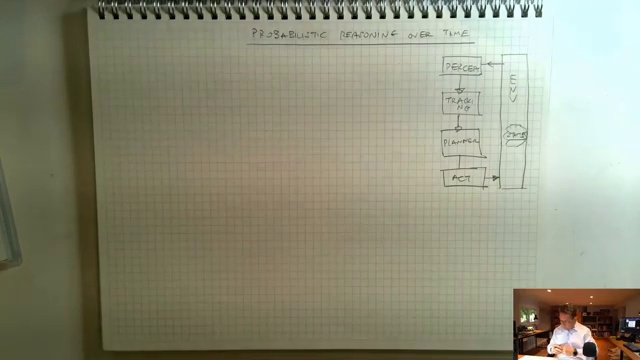 PROBABILISTIC REASONING OVER TIME
PERCEP
ENV
TRACKI
NG
STATE
PLANNER
ACT